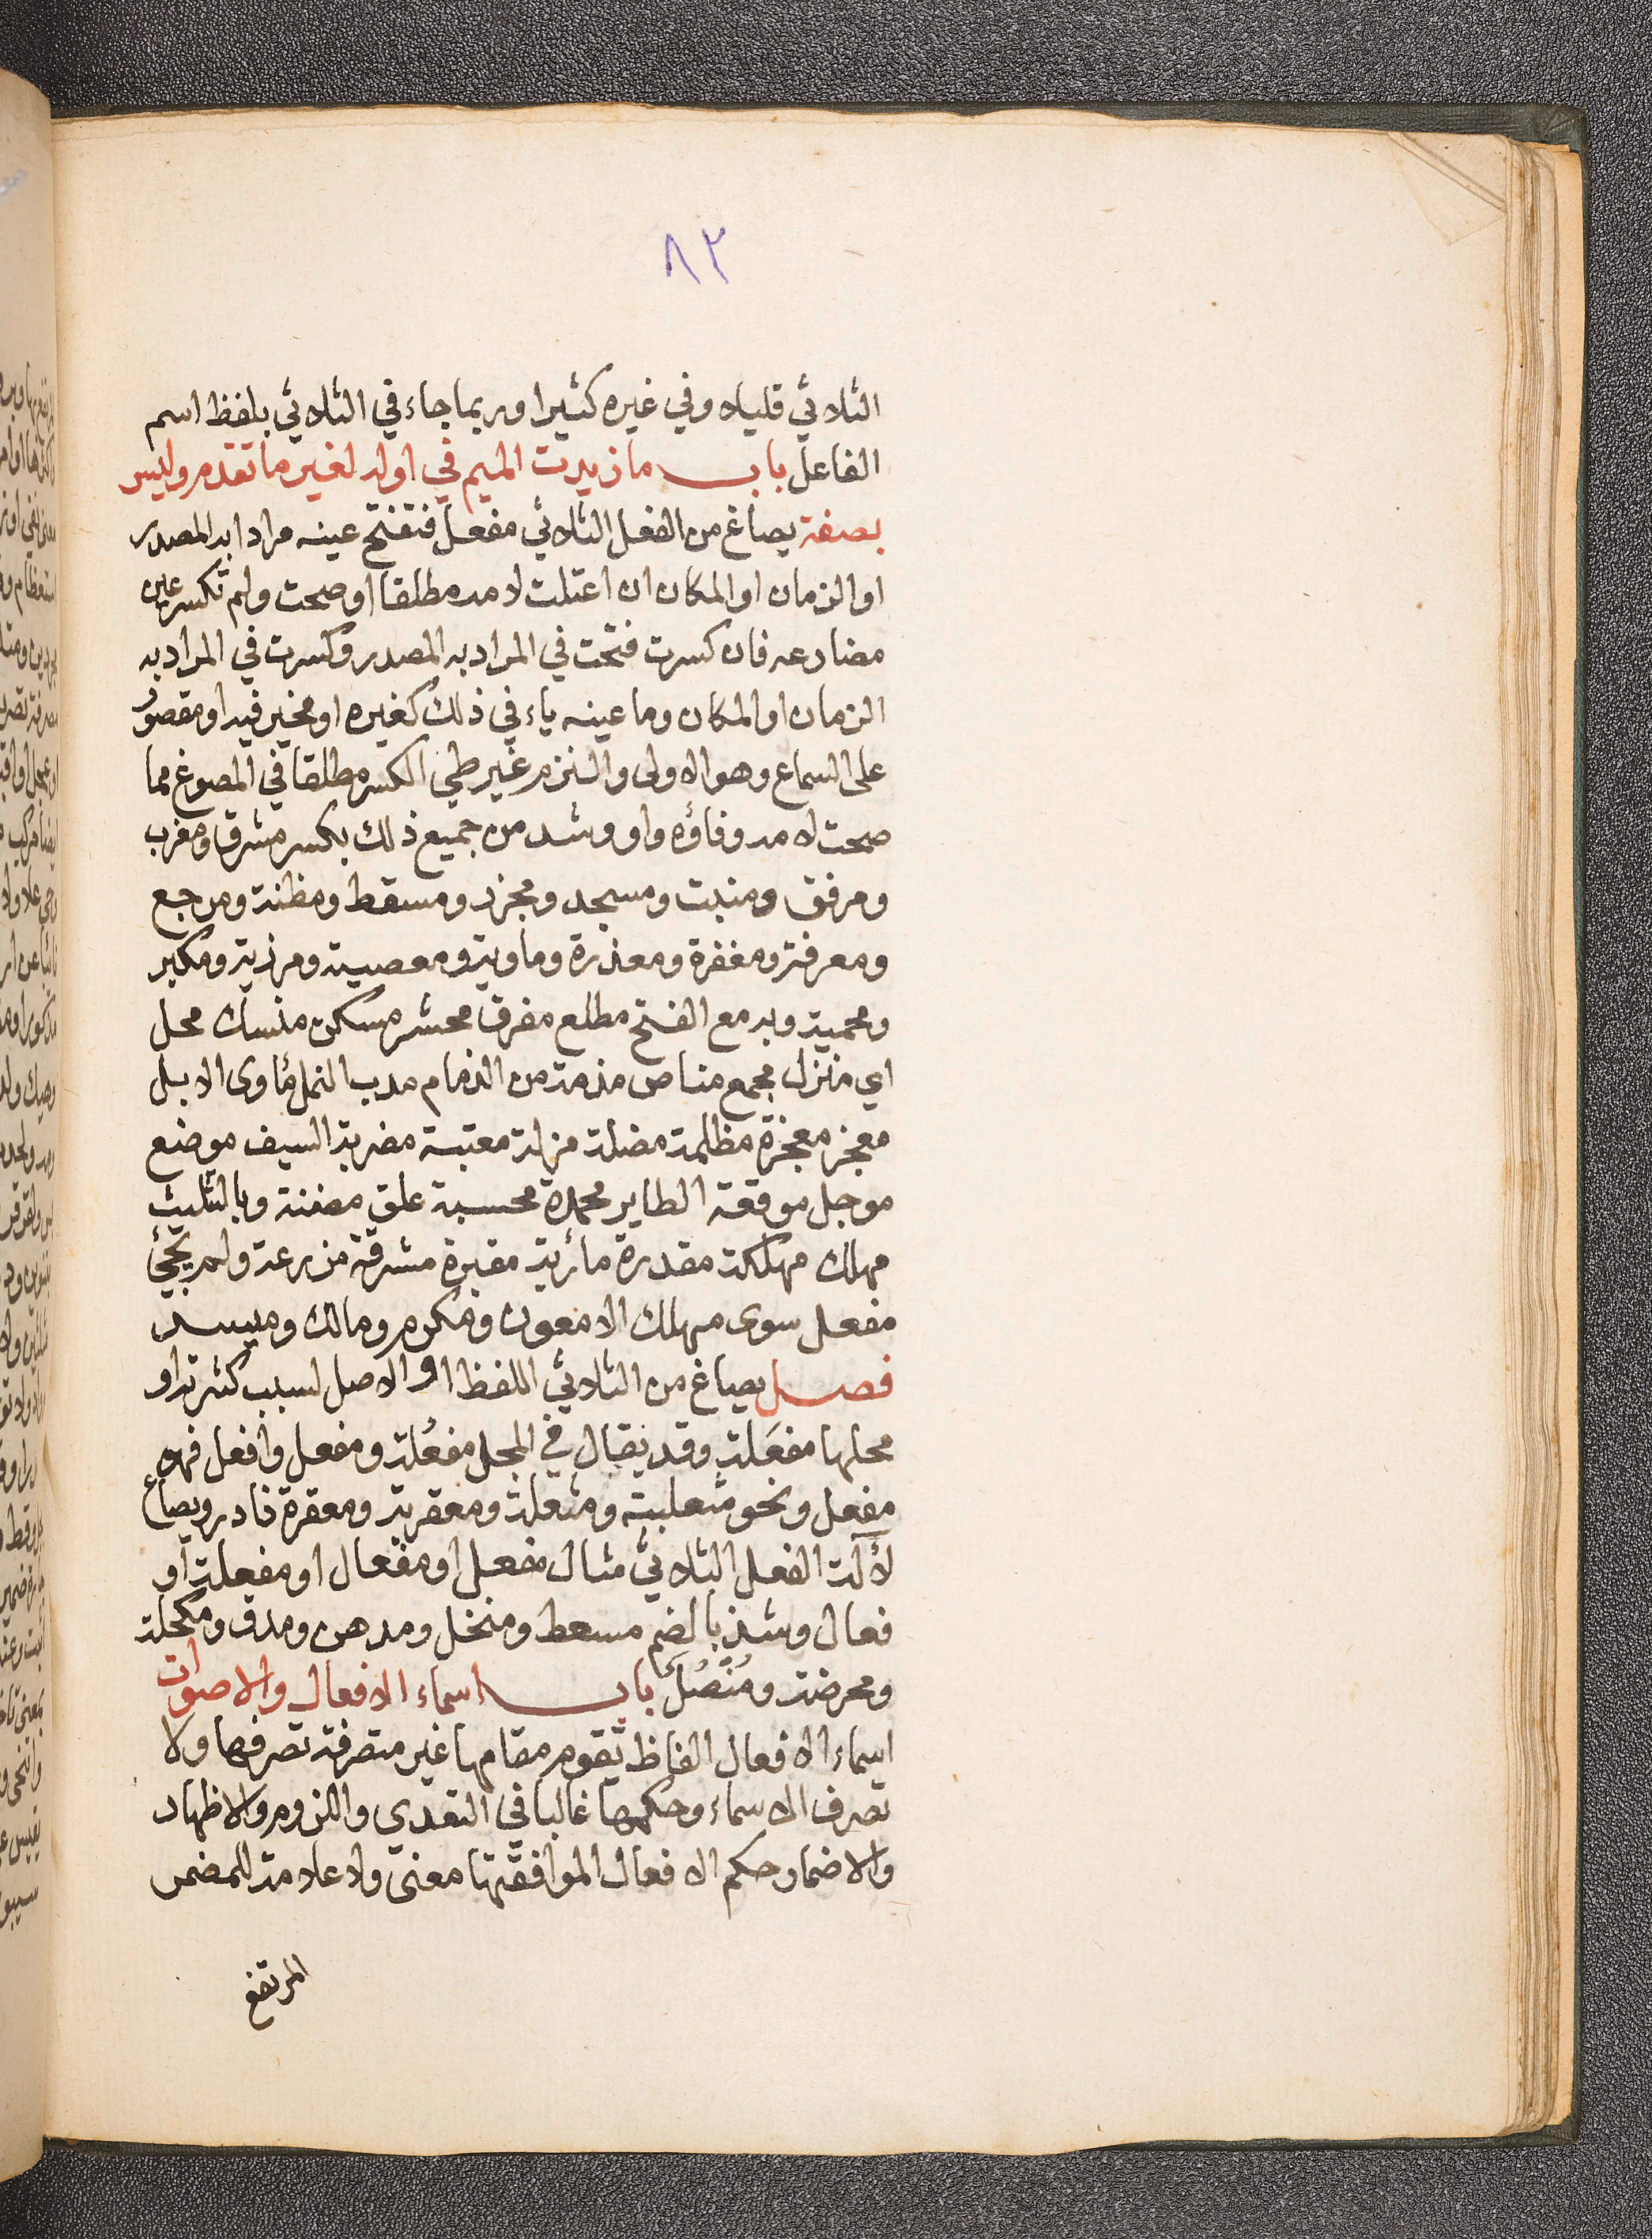 ٨٢
الثلاثي قليلا وفي غيره كثيرا وربما جاء في الثلاثي بلفظ اسم
الفاعل باب ما زيدت الميم في اوله لغير ما تقدم وليس
بصفة يصاغ من الفعل الثلاثي مفعل فتفتح عينه مرادا به المصدر
او الزمان او المكان ان اعتلت لامه مطلقا او صحت ولم تكسر عين
مضارعه فان كسرت فتحت في المراد به المصدر وكسرت في المراد به
الزمان او المكان وما عينه ياء في ذلك كغيره او مخير فيه او مقصور
على السماع وهو الاولى والتزم غير طي الكسر مطلقا في المصوغ مما
صحت لامه وفاؤه واو وشد من جميع ذلك بكسر مشرق ومغرب
ومرفق ومنبت ومسجد ومجزر ومسقط ومظنة ومرجع
ومعرفة ومغفرة ومعذرة وماوية ومعصية ومرزية ومكبر
ومحمية وبه مع الفتح مطلع مفرق محشر مسكن منسك محل
اي منزل مجمع مناص مذمة من الذمام مدب النمل مأوى الابل
معجز معجزة مظلمة مضلة مزلة معتبة مضربة السيف موضع
موجل موقعة الطاير محمدة محسبة علق مضنة وبالتثليث
مهلك مهلكة مقدرة مأربة مقبرة مشرقة مزرعة ولم يجئ
مفعل سوى مهلك الا معون ومكرم ومالك وميسر
فصل يصاغ من الثلاثي اللفظ او الاصل لسبب كثرته او
محلها مفعَلة وقد يقال في المحل مفعُلة ومفعل وافعل فهو
مفعل ونحو مثعلبة ومثعلة ومعقربة ومعقرة نادر ويصاغ
لآلة الفعل الثلاثي مثال مفعل او مفعال او مفعلة او
فعال وشذ بالضم مسعط ومنخل ومدهن ومدق ومكحلة
ومحرضة ومُنْصُل باب اسماء الافعال والاصوات
اسماء الافعال الفاظ تقوم مقامها غير متصرفة تصرفها ولا
تصرف الاسماء وحكمها غالبا في التعدي واللزوم والاظهار
والاضمار حكم الافعال الموافقتها معنى ولا علامة للمضمر
المرتفع